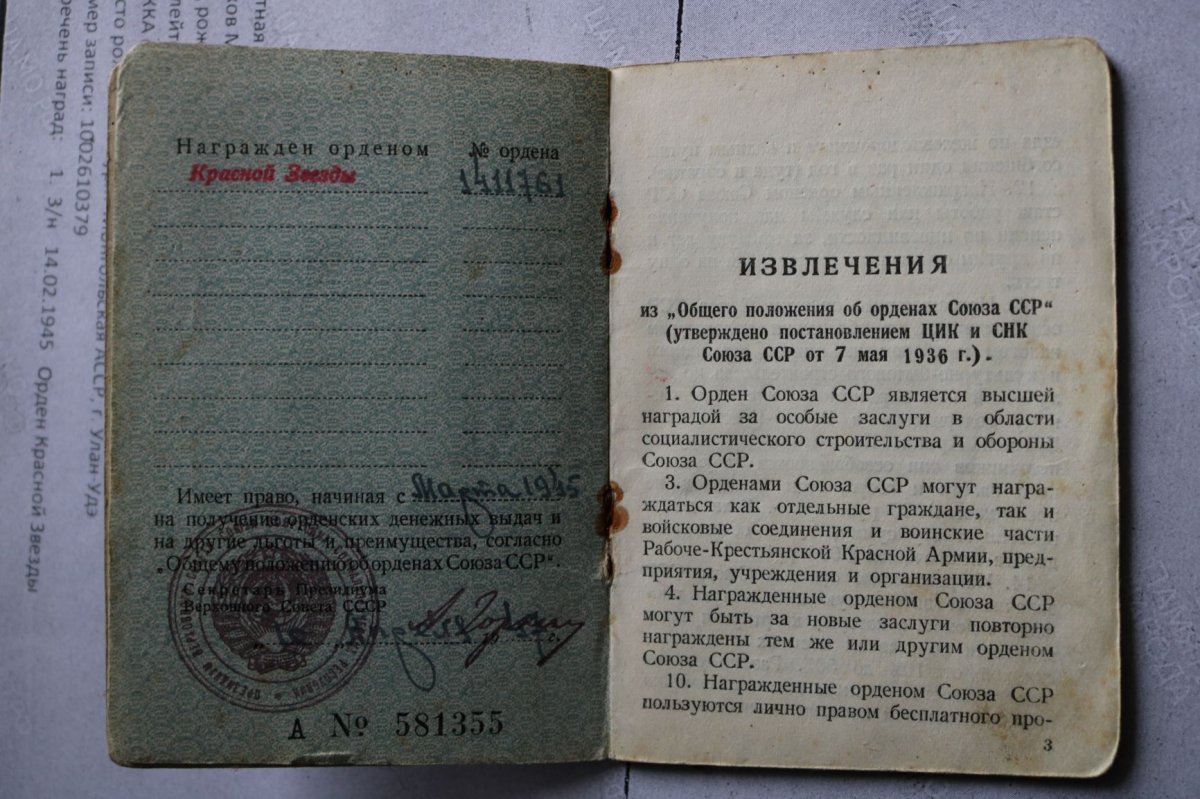 Награжден орденом № ордена
Красной Звезды 1411761
Имеет право, начиная с Марта 1945
на получение орденских денежных выдач и
на другие льготы и преимущества, согласно
„Общему положению об орденах Союза ССР“.
Секретарь Президиума
Верховного Совета СССР
А № 581355
ИЗВЛЕЧЕНИЯ
из „Общего положения об орденах Союза ССР“
(утверждено постановлением ЦИК и СНК
Союза ССР от 7 мая 1936 г.).
1. Орден Союза ССР является высшей
наградой за особые заслуги в области
социалистического строительства и обороны
Союза ССР.
3. Орденами Союза ССР могут награ-
ждаться как отдельные граждане, так и
войсковые соединения и воинские части
Рабоче-Крестьянской Красной Армии, пред-
приятия, учреждения и организации.
4. Награжденные орденом Союза ССР
могут быть за новые заслуги повторно
награждены тем же или другим орденом
Союза ССР.
10. Награжденные орденом Союза ССР
пользуются лично правом бесплатного про-
3
АССР, г. Улан-Удэ
мер записи: 1002610379
речень наград: 1. З/н 14.02.1945 Орден Красной Звезды